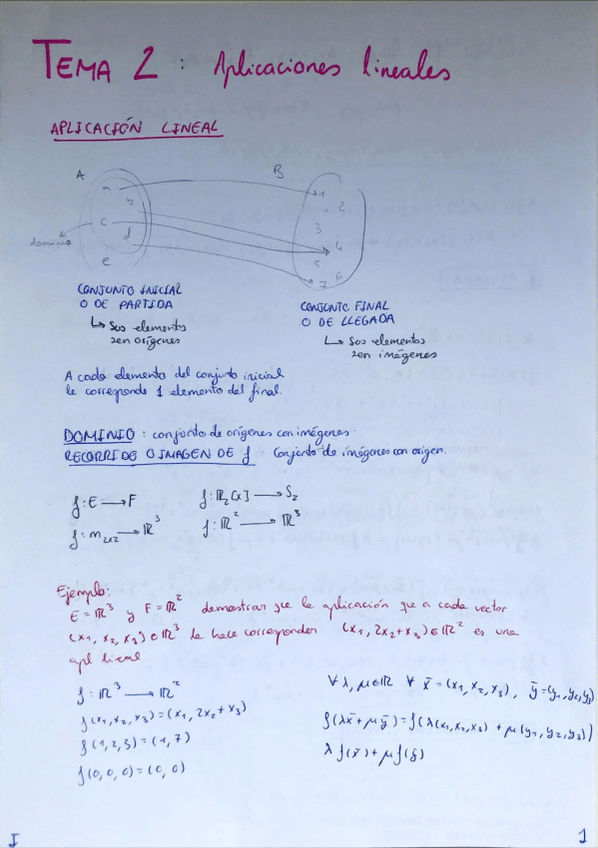 TEMA 2 : Aplicaciones lineales
APLICACIÓN LINEAL
A
B
a
b
c
d
e
dominio
1
2
3
4
5
6
7
CONJUNTO INICIAL
O DE PARTIDA
↳ Sus elementos
son orígenes
CONJUNTO FINAL
O DE LLEGADA
↳ Sus elementos
son imágenes
A cada elemento del conjunto inicial
le corresponde 1 elemento del final.
DOMINIO : conjunto de orígenes con imágenes
RECORRIDO O IMAGEN DE f : Conjunto de imágenes con origen.
f: E → F
f: m₂ₓ₂ → ℝ³
f: ℝ₂[x] → S₂
f: ℝ² → ℝ³
Ejemplo:
E = ℝ³ y F = ℝ² demostrar que la aplicación que a cada vector
(x₁, x₂, x₃) ∈ ℝ³ le hace corresponder (x₁, 2x₂+x₃) ∈ ℝ² es una
apl lineal
f: ℝ³ → ℝ²
f(x₁, x₂, x₃) = (x₁, 2x₂+x₃)
f(1, 2, 3) = (1, 7)
f(0, 0, 0) = (0, 0)
∀ λ, μ ∈ ℝ ∀ x̄ = (x₁, x₂, x₃), ȳ = (y₁, y₂, y₃)
f(λx̄ + μȳ) = f(λ(x₁, x₂, x₃) + μ(y₁, y₂, y₃))
λ f(x̄) + μ f(ȳ)
I
1